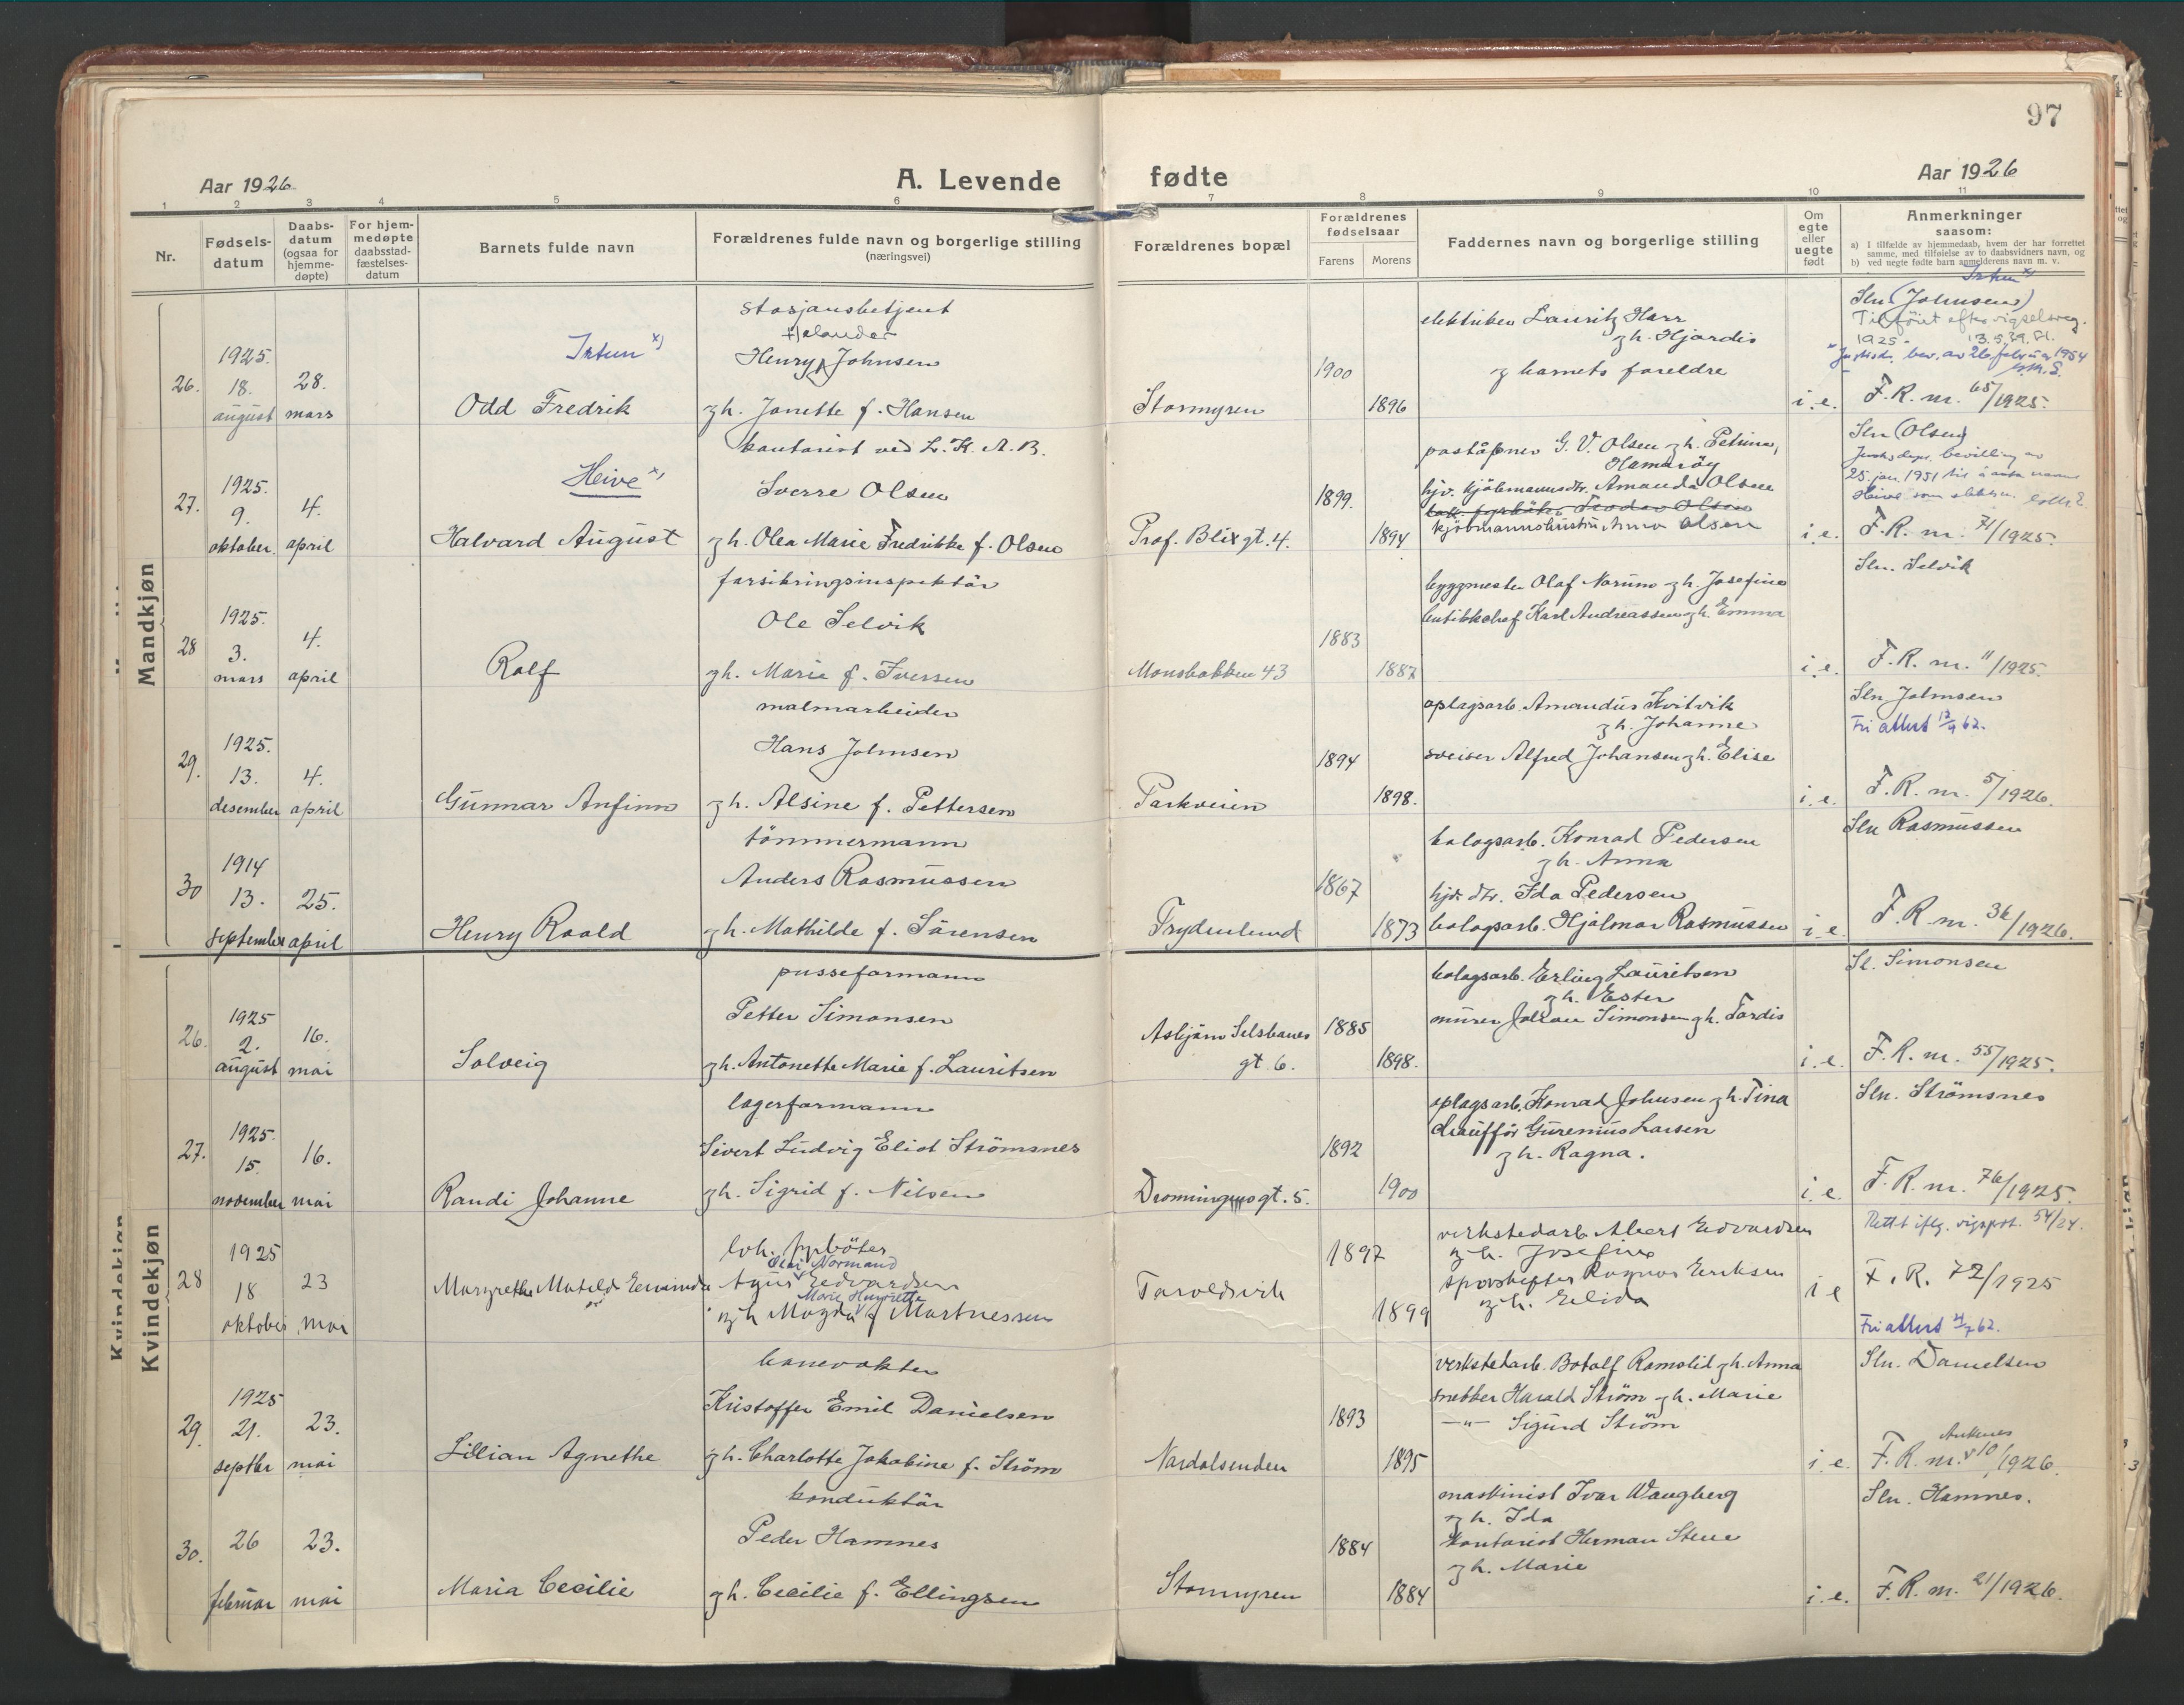 97
Aar 1926
A. Levende fødte
Aar 1926
1 2 3 4 5 6 7 8 9 10 11
Nr.
Fødsels-
datum
Daabs-
datum
(ogsaa for
hjemme-
døpte)
For hjem-
medøpte
daabsstad-
fæstelses-
datum
Barnets fulde navn
Forældrenes fulde navn og borgerlige stilling
(næringsvei)
Forældrenes bopæl
Forældrenes
fødselsaar
Farens Morens
Faddernes navn og borgerlige stilling
Om
egte
eller
uegte
født
Anmerkninger
saasom:
a) I tilfælde av hjemmedaab, hvem der har forrettet
samme, med tilføielse av to daabsvidners navn, og
b) ved uegte fødte barn anmelderens navn m. v.
Mandkjøn
26.
1925.
18.
august
28.
mars
Istun x)
Odd Fredrik
stasjonsbetjent
Helander
Henry Johnsen
g h. Janette f. Hansen
Stormyren
1900
1896
elektriker Lauritz Harr
g h. Hjørdis
g barnets foreldre
i. e.
Istun x)
Sln (Johnsen)
Tilføiet efter vigselsreg.
1925 - 13.5.39. St.
x) Justisd. bev. av 26 februar 1954
F. R. nr. 65/1925.
27.
1925.
9.
oktober
4.
april
Heive x)
Halvard August
kontorist ved L. K. A. B.
Sverre Olsen
g h. Olea Marie Fredrikke f. Olsen
Prof. Blix gt. 4.
1899.
1894
poståpner G. V. Olsen g h. Petrine,
Hamarøy
hjv. kjöbmannsdtr. Amanda Olsen
lok. fyrböter Teodor Olsen
kjöbmannshustru Anna Olsen
i. e.
Sln (Olsen)
Justisdeps. bevilling av
25. jan. 1951 til å anta navnet
Heive som slektsn.
F. R. nr. 71/1925.
28
1925.
3.
mars
4.
april
Rolf
forsikringsinspektör
Ole Selvik
g h. Marie f. Iversen
Monsbakken 43
1883
1887
byggmester Olaf Norum g h. Josefine
butikkchef Karl Andreassen g h. Emma
i. e.
Sln. Selvik
F. R. nr. 11/1925.
29.
1925.
13.
desember
4.
april
Gunnar Anfinn
malmarbeider
Hans Johnsen
g h. Alsine f. Pettersen
Parkveien
1894
1898.
oplagsarb. Amandus Kvitvik
g h. Johanne
sveiser Alfred Johansen g h. Elise
i. e.
Sln Johnsen
Fri attest 13/9 62.
F. R. nr. 5/1926.
30
1914
13.
september
25.
april
Henry Roald
tömmermann
Anders Rasmussen
g h. Mathilde f. Sörensen
Frydenlund
1867
1873
bolagsarb. Konrad Pedersen
g h. Anna
hjv. dtr. Ida Pedersen
bolagsarb. Hjalmar Rasmussen
i. e.
Sln Rasmussen
F. R. nr. 36/1926.
Kvindekjøn
Kvindekjøn
26.
1925
2.
august
16.
mai
Solveig
pusseformann
Petter Simonsen
g h. Antonette Marie f. Lauritsen
Asbjörn Selsbanes
gt. 6.
1885
1898.
bolagsarb. Erling Lauritsen
g h. Ester
murer Johan Simonsen g h. Tordis
i. e.
Sl. Simonsen
F. R. nr. 55/1925.
27.
1925.
15.
november
16.
mai
Randi Johanne
lagerformann
Sivert Ludvig Eliot Strömsnes
g h. Sigrid f. Nilsen
Dronningens gt. 5.
1892
1900
oplagsarb. Konrad Johnsen g h. Tina
chaufför Gurenius Larsen
g h. Ragna.
i. e.
Sln. Strömsnes
F. R. nr. 76/1925.
28
1925
18
oktober
23
mai
Margrethe Matilde Erminda
lok. fyrböter
Normand
Edvardsen
Marie Henriette
g h Magda f Martnessen
Taraldsvik
1897
1899
verkstedarb. Albert Edvardsen
g h. Josefine
sporskifter Ragnar Eriksen
g h. Elida
i e
Rettet iflg. vigsprot. 54/24.
F. R. 72/1925
Fri attest 21/7 62.
29.
1925
21.
septbr
23.
mai
Lillian Agnethe
banevakter
Kristoffer Emil Danielsen
g h. Charlotte Jakobine f. Ström
Nordalsenden
1893
1895
verkstedarb. Botolf Ramslid g h. Anna
snekker Harald Ström g h. Marie
—"— Sigurd Ström
i. e.
Sln. Danielsen
Ankenes
F. R. nr. 10/1926.
30.
26
februar
23.
mai
Maria Cecilie
konduktör
Peder Hamnes
g h. Cecilie f. Ellingsen
Stormyren
1884
1884
maskinist Ivar Wangberg
g h. Ida
kontorist Herman Stene
g h. Marie
i. e.
Sln. Hamnes.
F. R. nr. 21/1926.